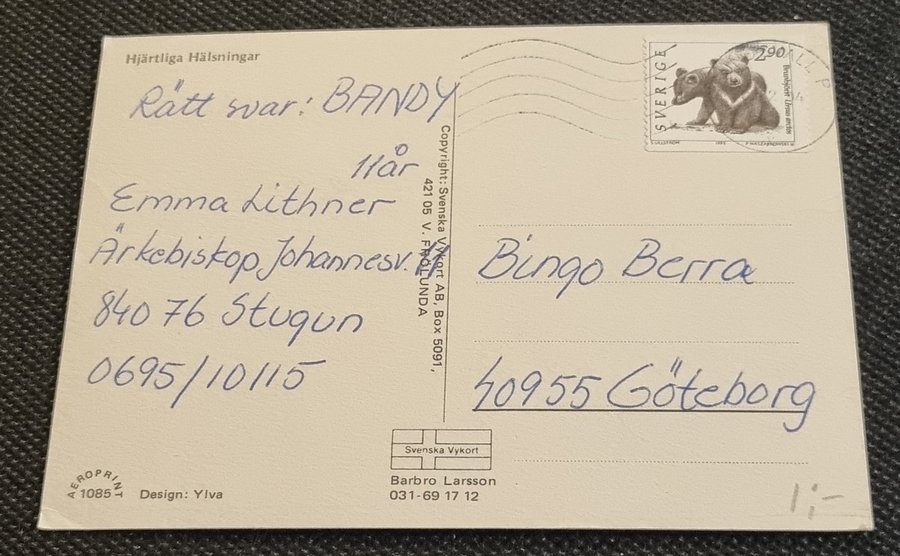 Hjärtliga Hälsningar
Rätt svar: BANDY
11år
Emma Lithner
Ärkebiskop Johannesv.
840 76 Stugun
0695/10115
Copyright: Svenska Vykort AB, Box 5091,
421 05 V. FRÖLUNDA
SVERIGE
2.90
Brunbjörn Ursus arctos
Bingo Berra
40955 Göteborg
Svenska Vykort
Barbro Larsson
031-69 17 12
AEROPRINT
1085
Design: Ylva
1:-